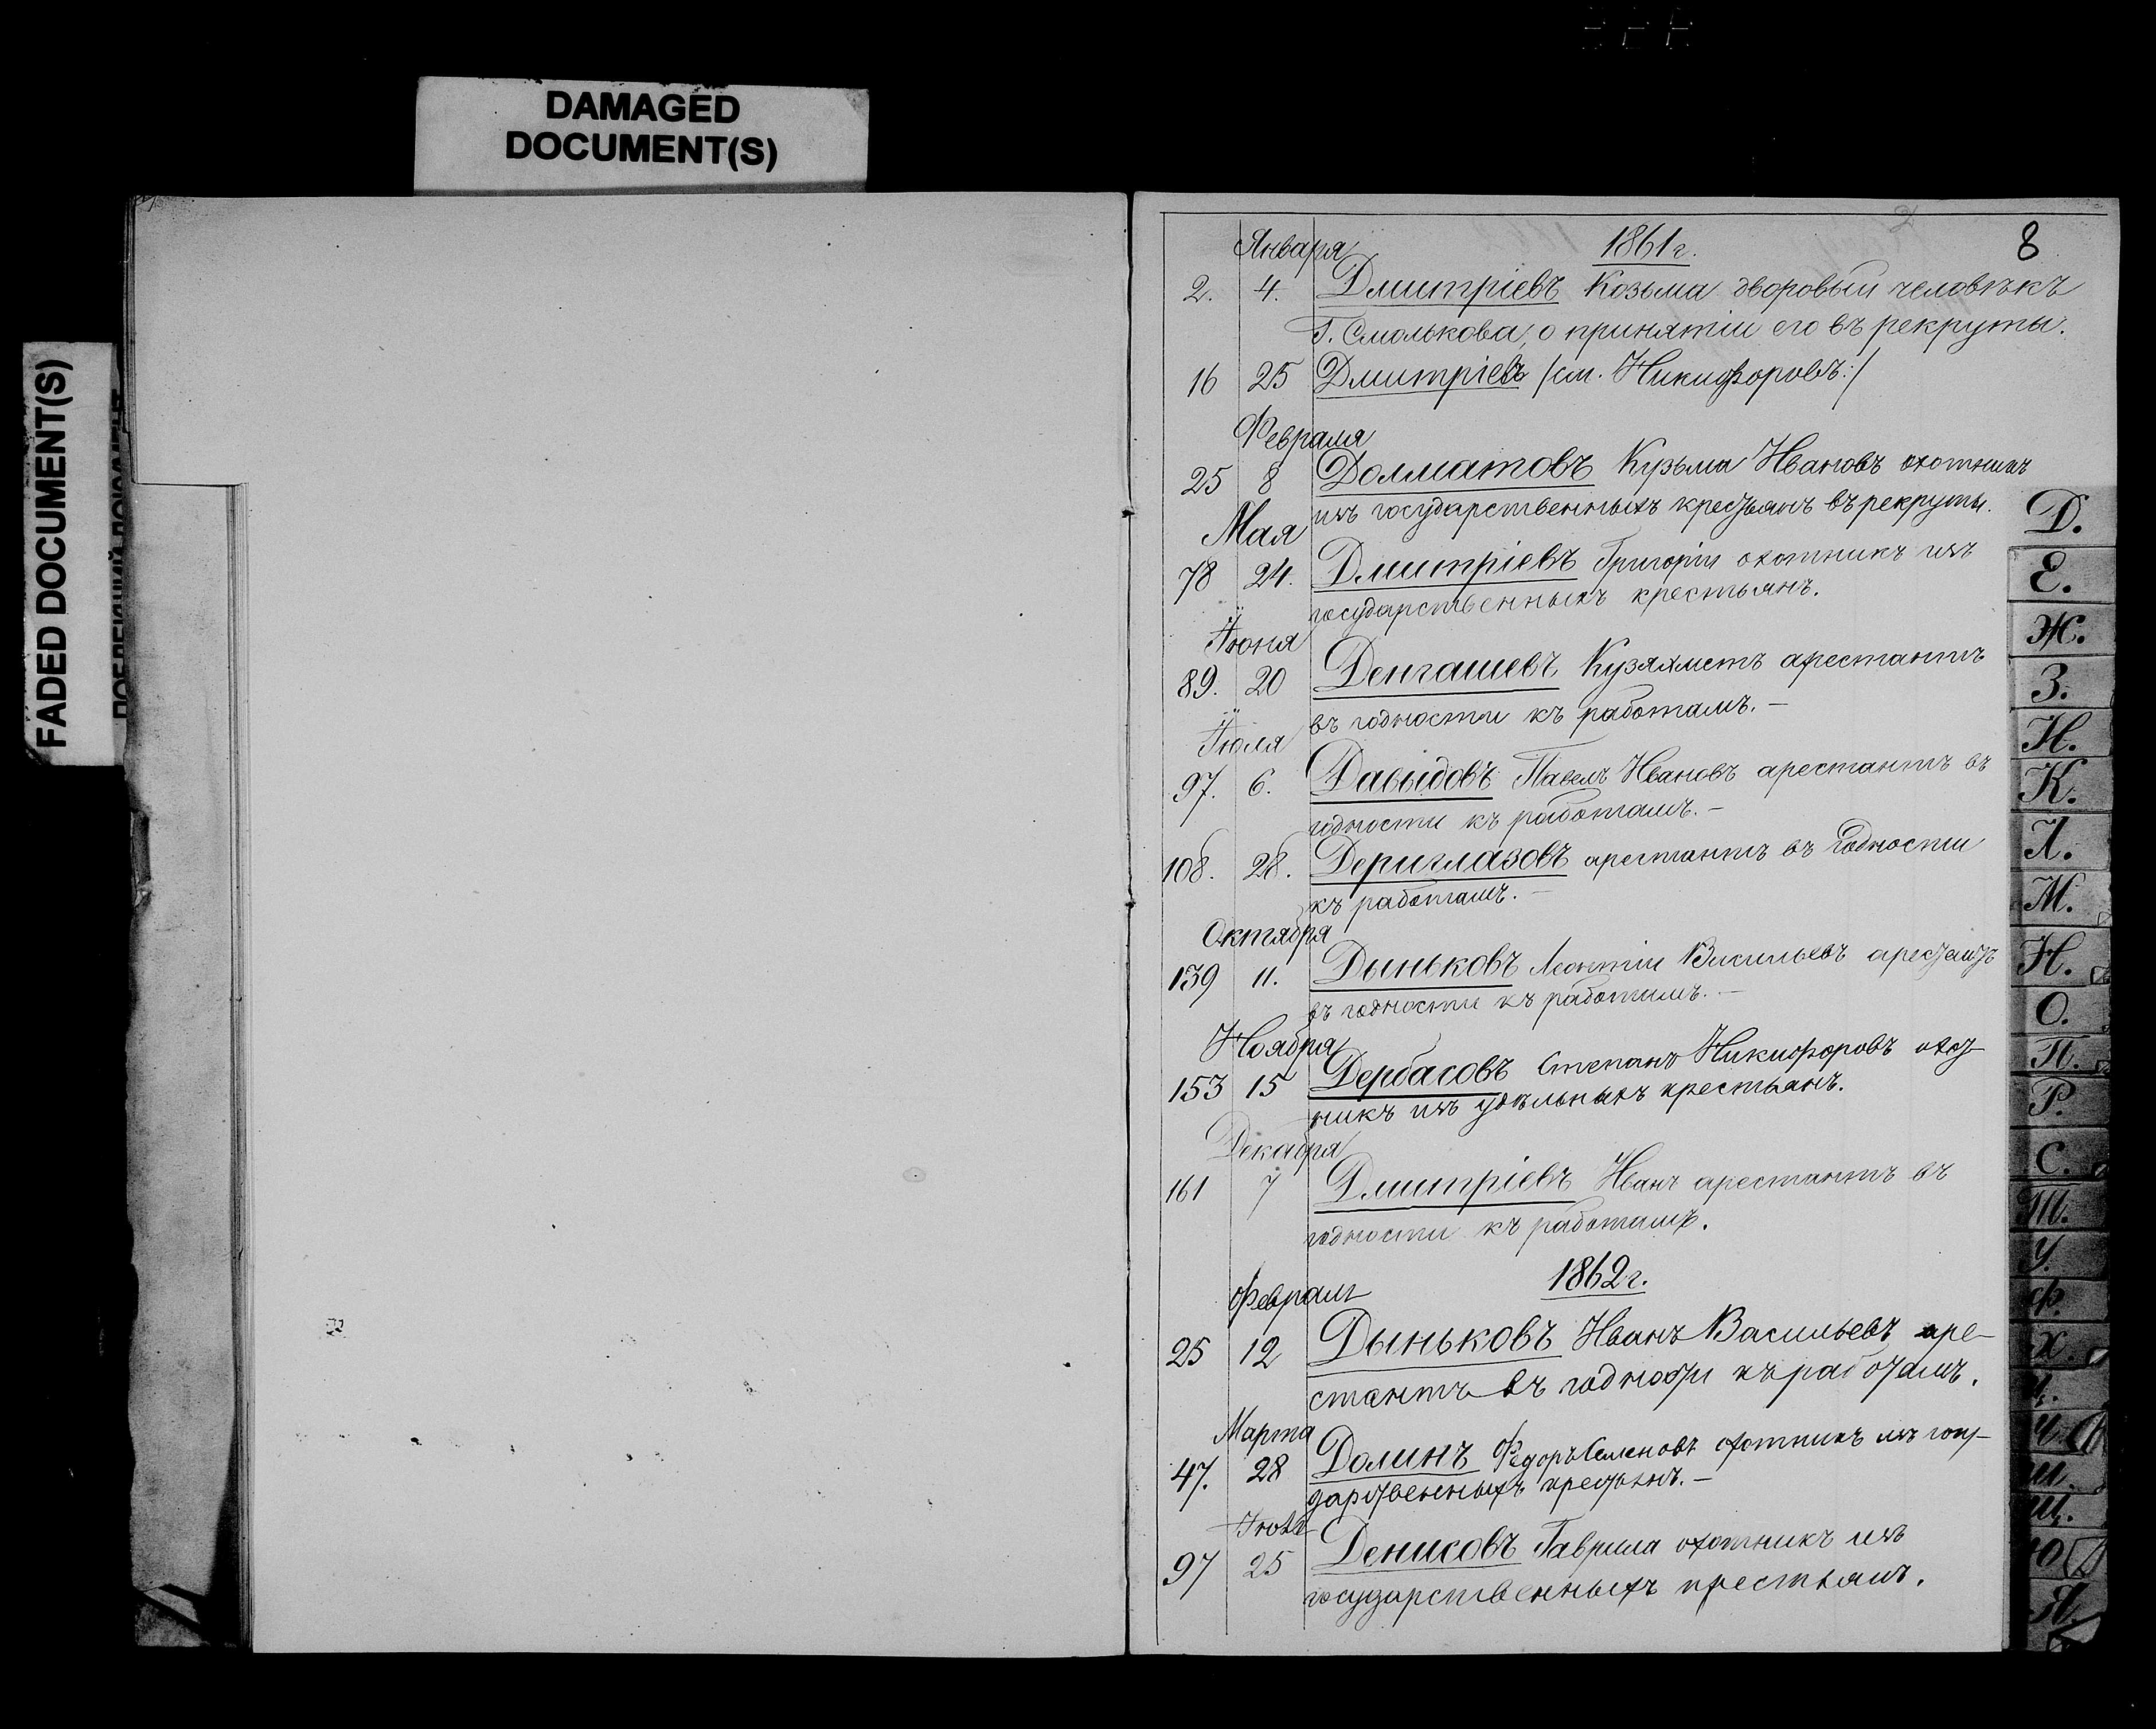 DAMAGED
DOCUMENT(S)
FADED DOCUMENT(S)
8
Января 1861 г.
2. 4. Дмитріевъ Козьма дворовый человѣкъ
Г. Смолькова, о принятіи его въ рекруты.
16 25 Дмитріевъ /см. Никифоровъ:/
Февраля
25 8 Долматовъ Кузьма Ивановъ охотникъ
изъ государственныхъ крестьянъ въ рекруты.
Мая
78 24. Дмитріевъ Григорій охотникъ изъ
государственныхъ крестьянъ.
Іюня
89. 20 Денгашевъ арестантъ
въ годности къ работамъ. —
Іюля
97. 6. Давыдовъ Павелъ Ивановъ арестантъ въ
годности къ работамъ. —
108. 28. Дериглазовъ арестантъ въ годности
къ работамъ. —
Октября
139 11. Дыньковъ Леонтій Васильевъ арестантъ
въ годности къ работамъ. —
Ноября
153 15 Дербасовъ Степанъ Никифоровъ охот-
никъ изъ удѣльныхъ крестьянъ.
Декабря
161 7 Дмитріевъ Иванъ арестантъ въ
годности къ работамъ.
1862 г.
Февраля
25 12 Дыньковъ Иванъ Васильевъ аре-
стантъ въ годности къ работамъ.
Марта
47. 28 Долинъ Федоръ Семеновъ охотникъ изъ госу-
дарственныхъ крестьянъ. —
97 25 Денисовъ Гаврила охотникъ изъ
государственныхъ крестьянъ.
Д.
Е.
Ж.
З.
И.
К.
Л.
М.
Н.
О.
П.
Р.
С.
Т.
У.
Ф.
Х.
Ц.
Ч.
Ш.
Щ.
Ю
Я.